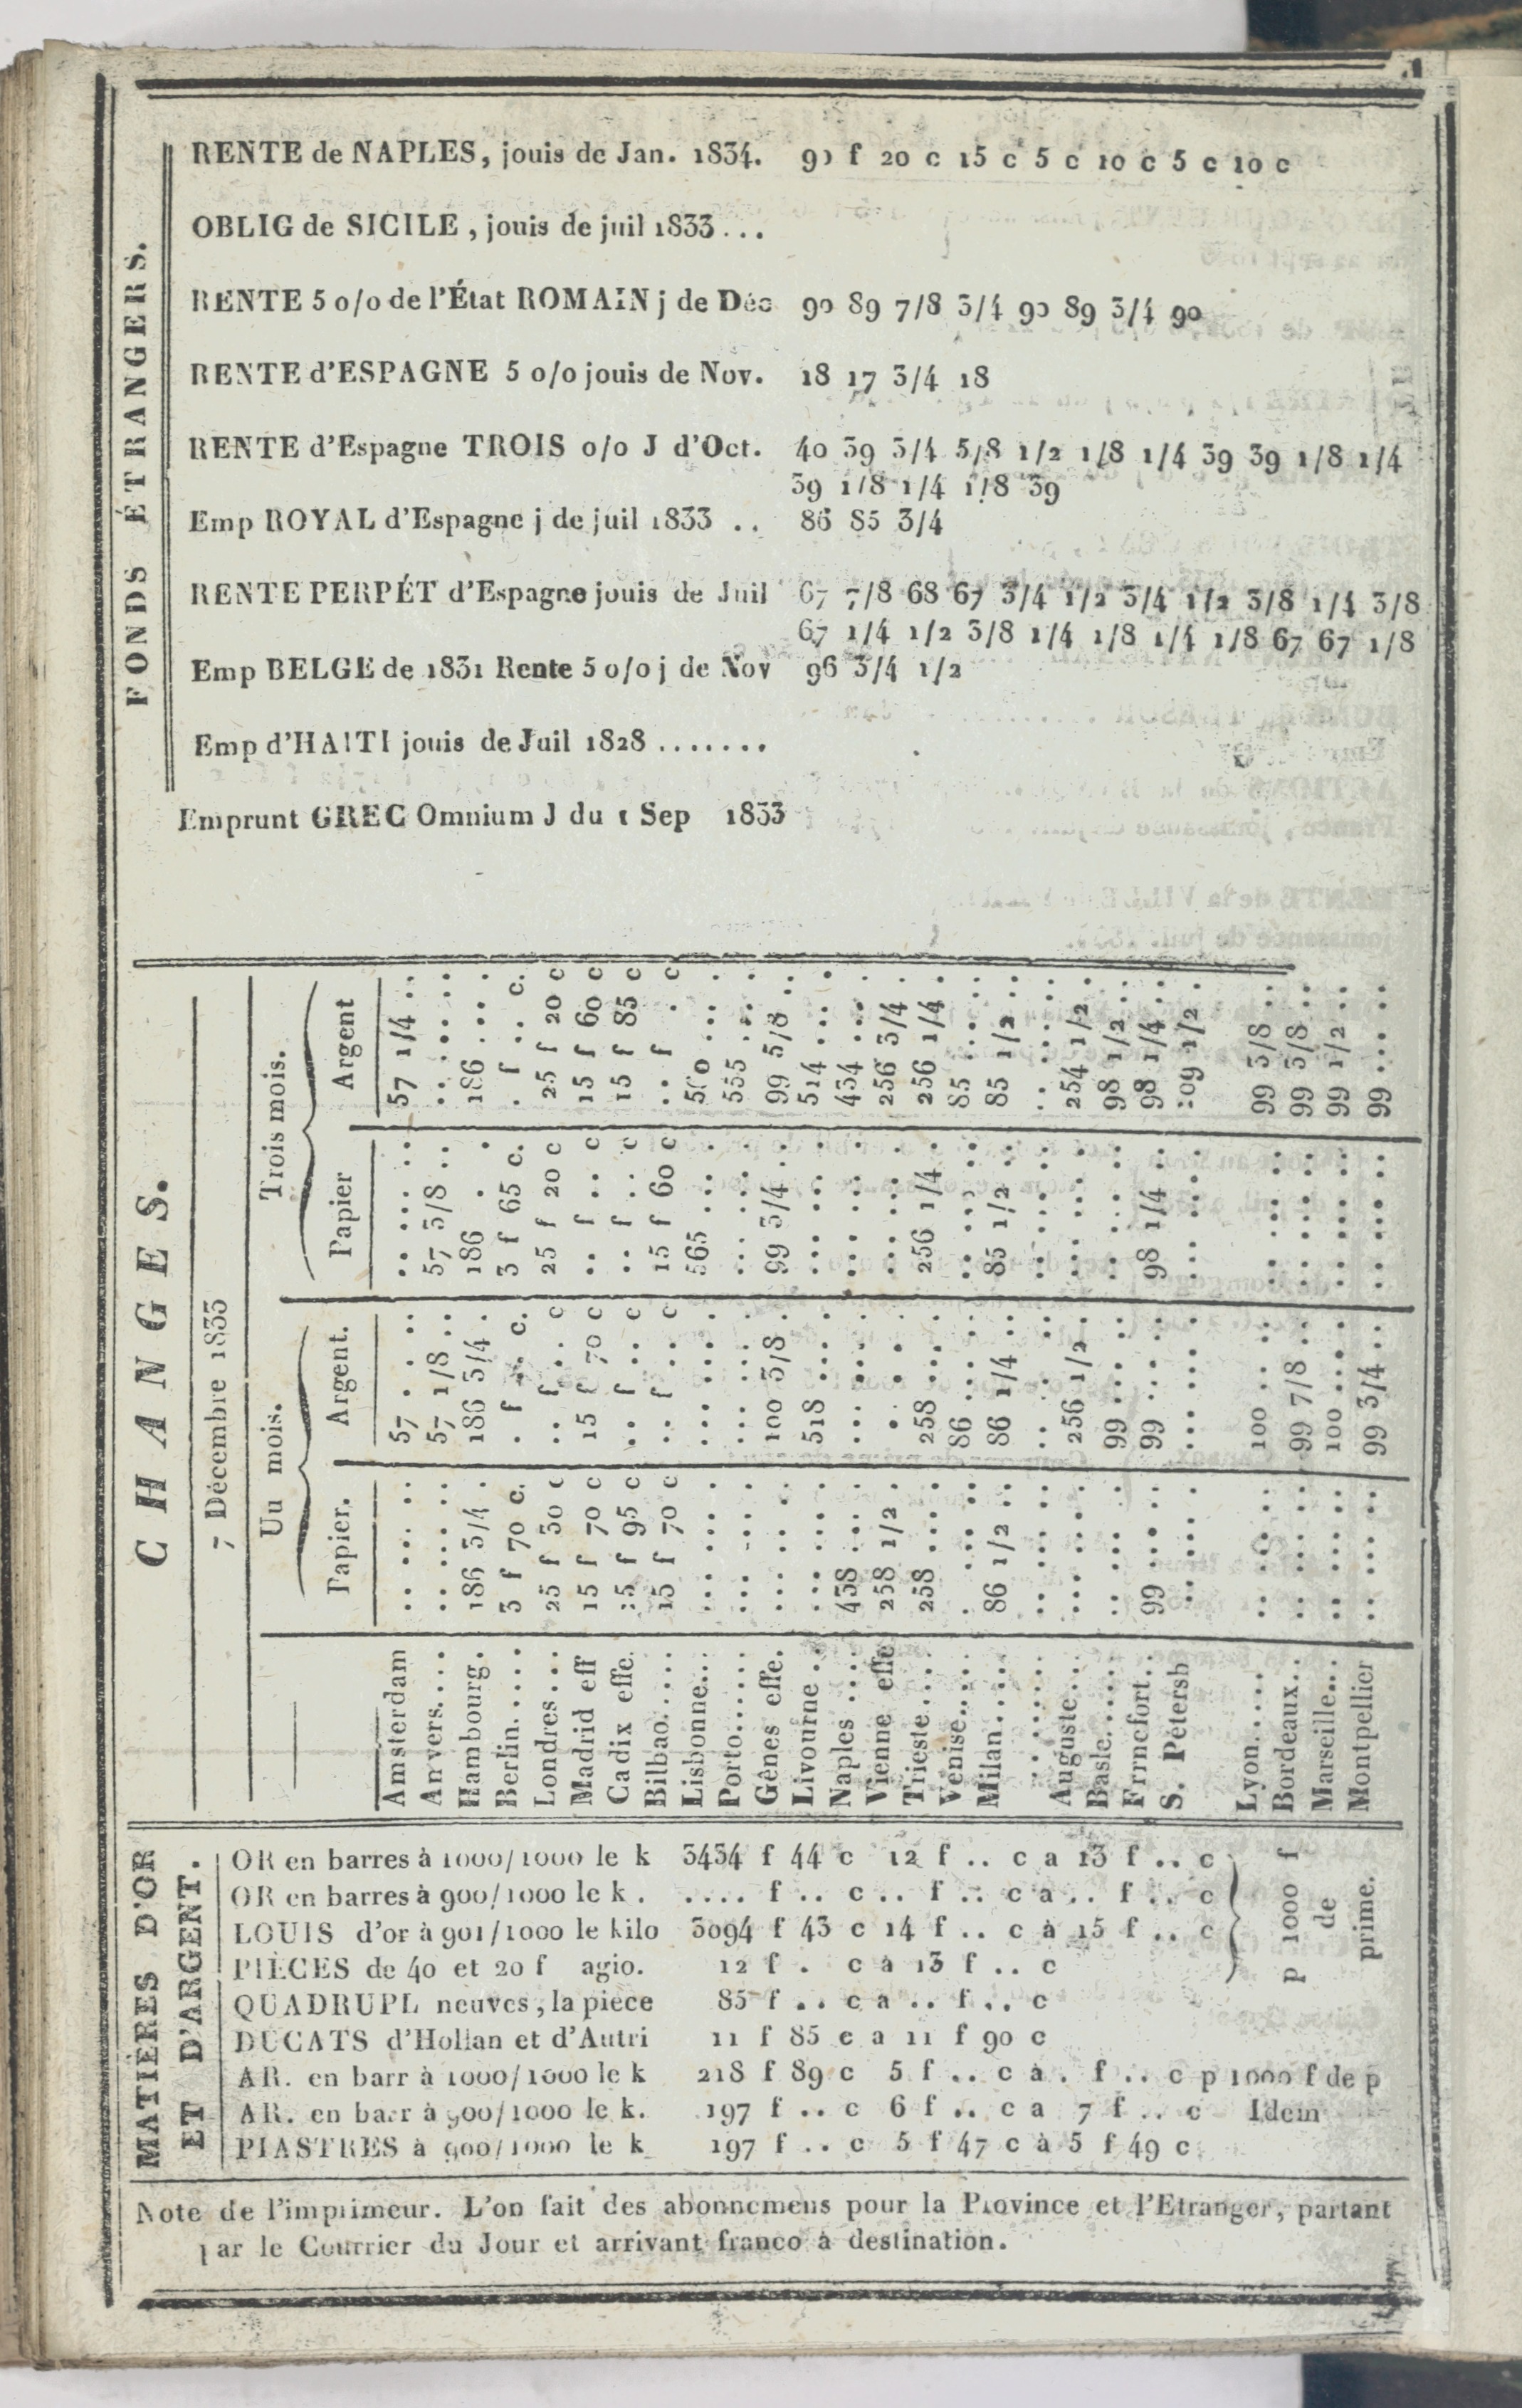 FONDS ÉTRANGERS.
RENTE de NAPLES, jouis de Jan. 1834. 90 f 20 c 15 c 5 c 10 c 5 c 10 c
OBLIG de SICILE, jouis de juil 1833...
RENTE 5 o/o de l'État ROMAIN j de Déc 90 89 7/8 3/4 90 89 3/4 90
RENTE d'ESPAGNE 5 o/o jouis de Nov. 18 17 3/4 18
RENTE d'Espagne TROIS o/o J d'Oct. 40 39 3/4 5/8 1/2 1/8 1/4 39 39 1/8 1/4
39 1/8 1/4 1/8 39
Emp ROYAL d'Espagne j de juil 1833 .. 86 85 3/4
RENTE PERPÉT d'Espagne jouis de Juil 67 7/8 68 67 3/4 1/2 3/4 1/2 3/8 1/4 3/8
67 1/4 1/2 3/8 1/4 1/8 1/4 1/8 67 67 1/8
Emp BELGE de 1831 Rente 5 o/o j de Nov 96 3/4 1/2
Emp d'HAITI jouis de Juil 1828 .......
Emprunt GREC Omnium J du 1 Sep 1833
CHANGES.
7 Décembre 1833
Uu mois. Trois mois.
Papier. Argent. Papier Argent
Amsterdam .. ... .. 57 . .. .. ... .. 57 1/4 ..
Anvers.... .. ... .. 57 1/8 .. 57 3/8 .. .. ... ..
Hambourg. 186 3/4 . 186 3/4 . 186 . . 186 ... .
Berlin..... 3 f 70 c. . f .. c. 3 f 65 c. . f .. c.
Londres... 25 f 30 c .. f .. c 25 f 20 c 25 f 20 c
Madrid eff 15 f 70 c 15 f 70 c .. f .. c 15 f 60 c
Cadix effe. 15 f 95 c .. f .. c .. f .. c 15 f 85 c
Bilbao..... 15 f 70 c .. f .. c 15 f 60 c .. f . c
Lisbonne... ... ... . ... ... . 565 ... . 560 ... .
Porto...... ... ... . ... ... . ... ... . 555 ... .
Gênes effe. ... .. . 100 3/8 . 99 3/4 . 99 5/8 ..
Livourne .. ... ... . 518 ... . ... ... . 514 ... .
Naples .... 438 ... . ... ... . ... ... . 434 ... .
Vienne effe 258 1/2 . .. . . ... ... . 256 3/4 .
Trieste.... 258 ... . 258 ... . 256 1/4 . 256 1/4 .
Venise..... . ... .. 86 ... .. .. ... .. 85 ... ..
Milan..... 86 1/2 .. 86 1/4 .. 85 1/2 .. 85 1/2 ..
....... .. ... .. .. ... .. .. ... .. .. ... ..
Auguste... ... ... . 256 1/2 . ... ... . 254 1/2 .
Basle...... .. ... .. 99 ... .. .. ... .. 98 1/2 ..
Frrncfort.. 99 ... .. 99 ... .. 98 1/4 .. 98 1/4 ..
S. Pétersb ... ... . ... ... . ... ... . 109 1/2 .
Lyon..... .. ... .. 100 ... .. .. ... .. 99 3/8 ..
Bordeaux... .. ... .. 99 7/8 .. .. ... .. 99 3/8 ..
Marseille... .. ... .. 100 ... . .. ... .. 99 1/2 ..
Montpellier .. ... .. 99 3/4 .. .. ... .. 99 ... ..
MATIÈRES D'OR
ET D'ARGENT.
OR en barres à 1000/1000 le k 3434 f 44 c 12 f .. c a 13 f .. c
OR en barres à 900/1000 le k . .... f .. c .. f .. c a .. f .. c
LOUIS d'or à 901/1000 le kilo 3094 f 43 c 14 f .. c à 15 f .. c
p 1000 f
de
prime.
PIÈCES de 40 et 20 f agio. 12 f . c à 13 f .. c
QUADRUPL neuves, la pièce 85 f .. c a .. f .. c
DUCATS d'Hollan et d'Autri 11 f 85 c a 11 f 90 c
AR. en barr à 1000/1000 le k 218 f 89 c 5 f .. c à . f .. c p 1000 f de p
AR. en barr à 900/1000 le k. 197 f .. c 6 f .. c a 7 f .. c Idem
PIASTRES à 900/1000 le k 197 f .. c 5 f 47 c à 5 f 49 c
Note de l'imprimeur. L'on fait des abonnemens pour la Province et l'Etranger, partant
par le Courrier du Jour et arrivant franco à destination.